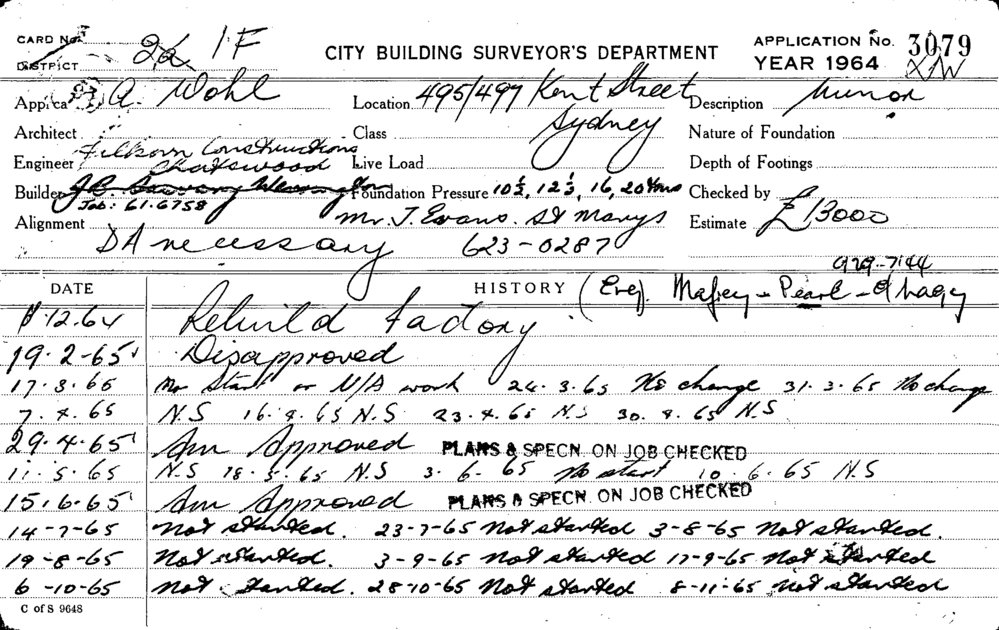 CARD No. 1F
DISTRICT 22
CITY BUILDING SURVEYOR'S DEPARTMENT
APPLICATION No. 3079
YEAR 1964
Applicant A. Wohl
Location 495/497 Kent Street
Sydney
Description Minor
Architect
Class
Nature of Foundation
Engineer Filkorn Constructions
Chatswood
Live Load
Depth of Footings
Builder
Job: 61.6758
Foundation Pressure 10½, 12½, 16, 20 tons
Checked by
Alignment
Mr. J. Evans. St Marys
Estimate £13000
DA necessary 623-0287
929-7144
DATE HISTORY (Eng. Mafey - Pearl -
.12.64 Rebuild factory
19.2-65 Disapproved
17.3.65 No Start or U/A work 24.3.65 No change 31.3.65 No change
7.4.65 N.S 16.4.65 N.S 23.4.65 N.S 30.4.65 N.S
29.4.65 Am Approved PLANS & SPECN. ON JOB CHECKED
11.5.65 N.S 18.5.65 N.S 3.6.65 No start 10.6.65 N.S
15.6.65 Am Approved PLANS & SPECN. ON JOB CHECKED
14-7-65 Not started. 23-7-65 Not started 3-8-65 Not started.
19-8-65 Not started. 3-9-65 Not started 17-9-65 Not started
6-10-65 Not started. 28-10-65 Not started 8-11-65 Not started
C of S 9648